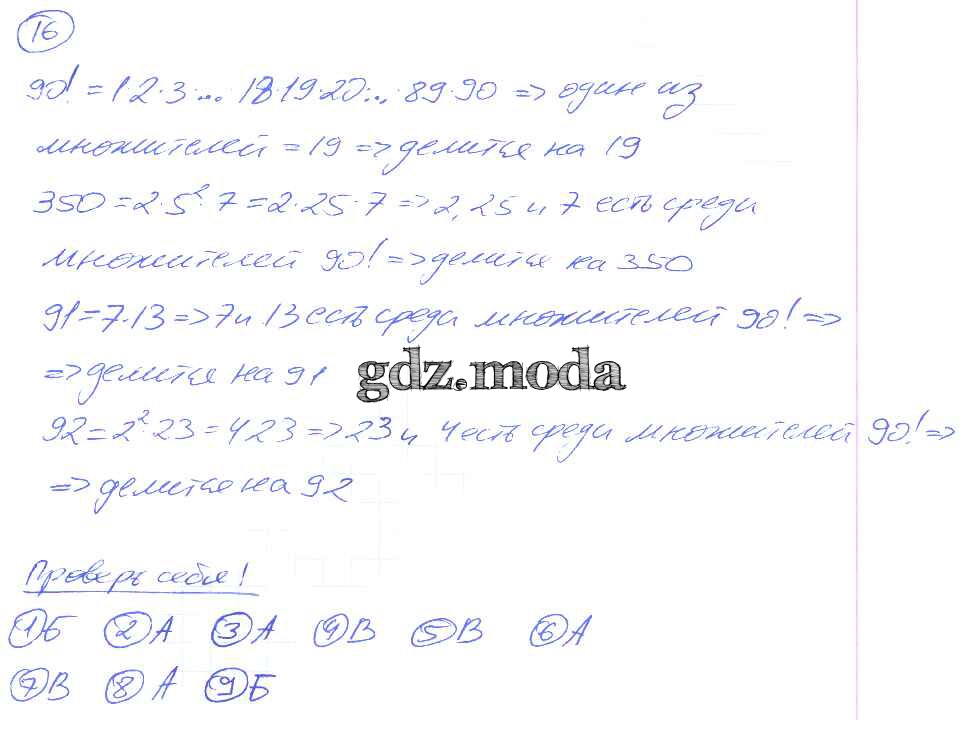 16
90! = 1·2·3·... 18·19·20·... ·89·90 => один из
множителей = 19 => делится на 19
350 = 2·5²·7 = 2·25·7 => 2, 25 и 7 есть среди
множителей 90! => делится на 350
91 = 7·13 => 7 и 13 есть среди множителей 90! =>
=> делится на 91
gdz.moda
92 = 2²·23 = 4·23 => 23 и 4 есть среди множителей 90! =>
=> делится на 92
Проверь себя!
1 Б 2 А 3 А 4 В 5 В 6 А
7 В 8 А 9 Б